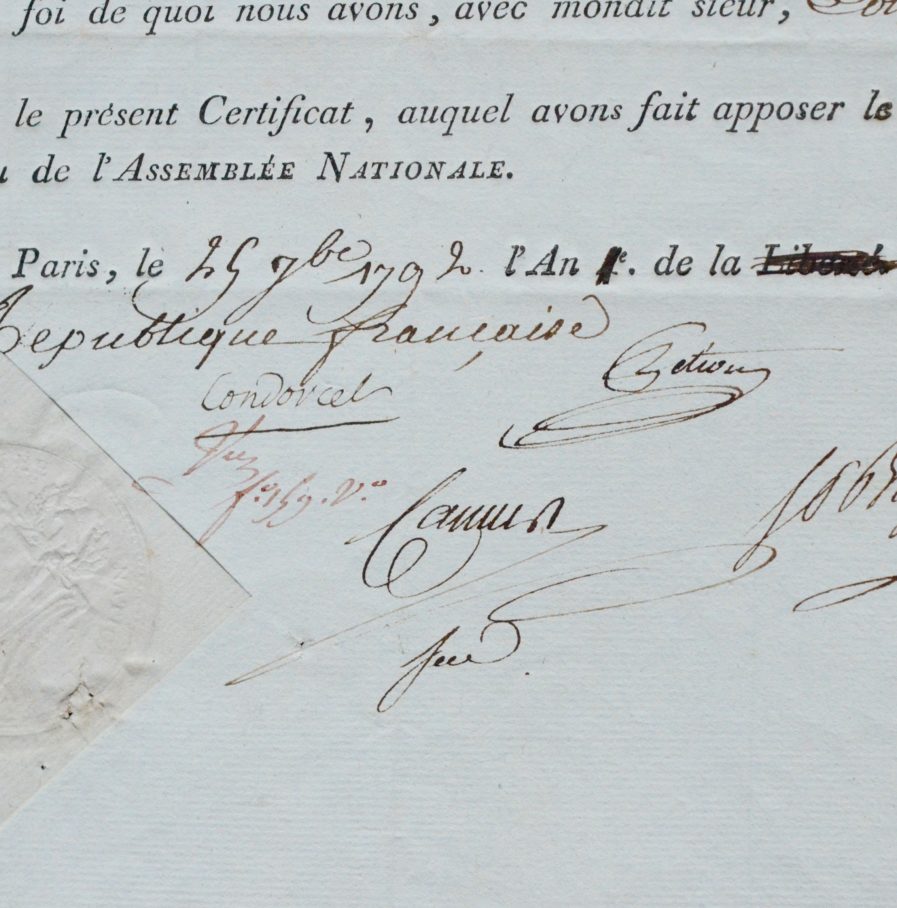 foi de quoi nous avons, avec mondit sieur,
le présent Certificat, auquel avons fait apposer le
de l'ASSEMBLÉE NATIONALE.
Paris, le 25 7bre 1792 l'An 1.er de la Liberté.
République française
Condorcet Petion
Vu
f.o 159. V.o
Camus